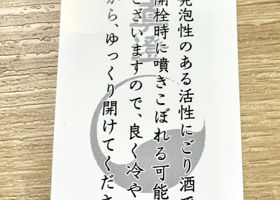 発泡性のある活性にごり酒で
開栓時に噴きこぼれる可能
ございますので、良く冷や
から、ゆっくり開けてくださ